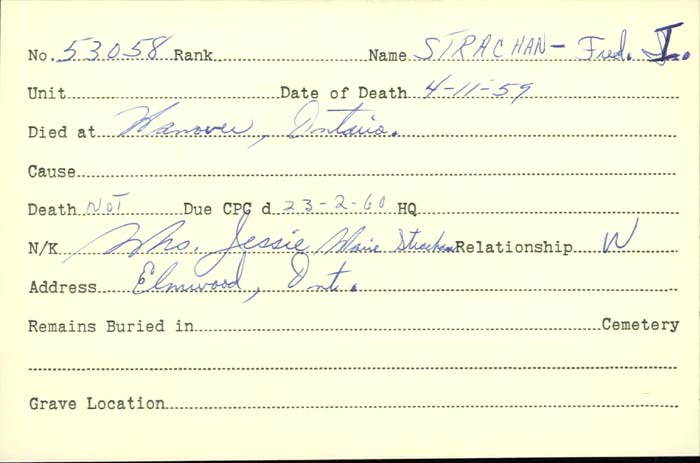 No. 53058 Rank Name STRACHAN - Fred. I.
Unit Date of Death 4-11-59
Died at Hanover, Ontario.
Cause
Death NOT Due CPC d 23-2-60 HQ
N/K Mrs. Jessie Marie Strachan Relationship W
Address Elmwood, Ont.
Remains Buried in Cemetery
Grave Location